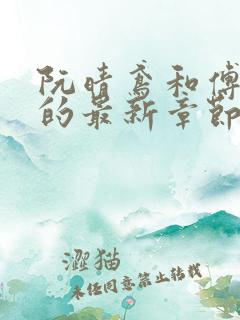 阮晴鸢和傅
的最新章节
澀猫
未经同意禁止转载